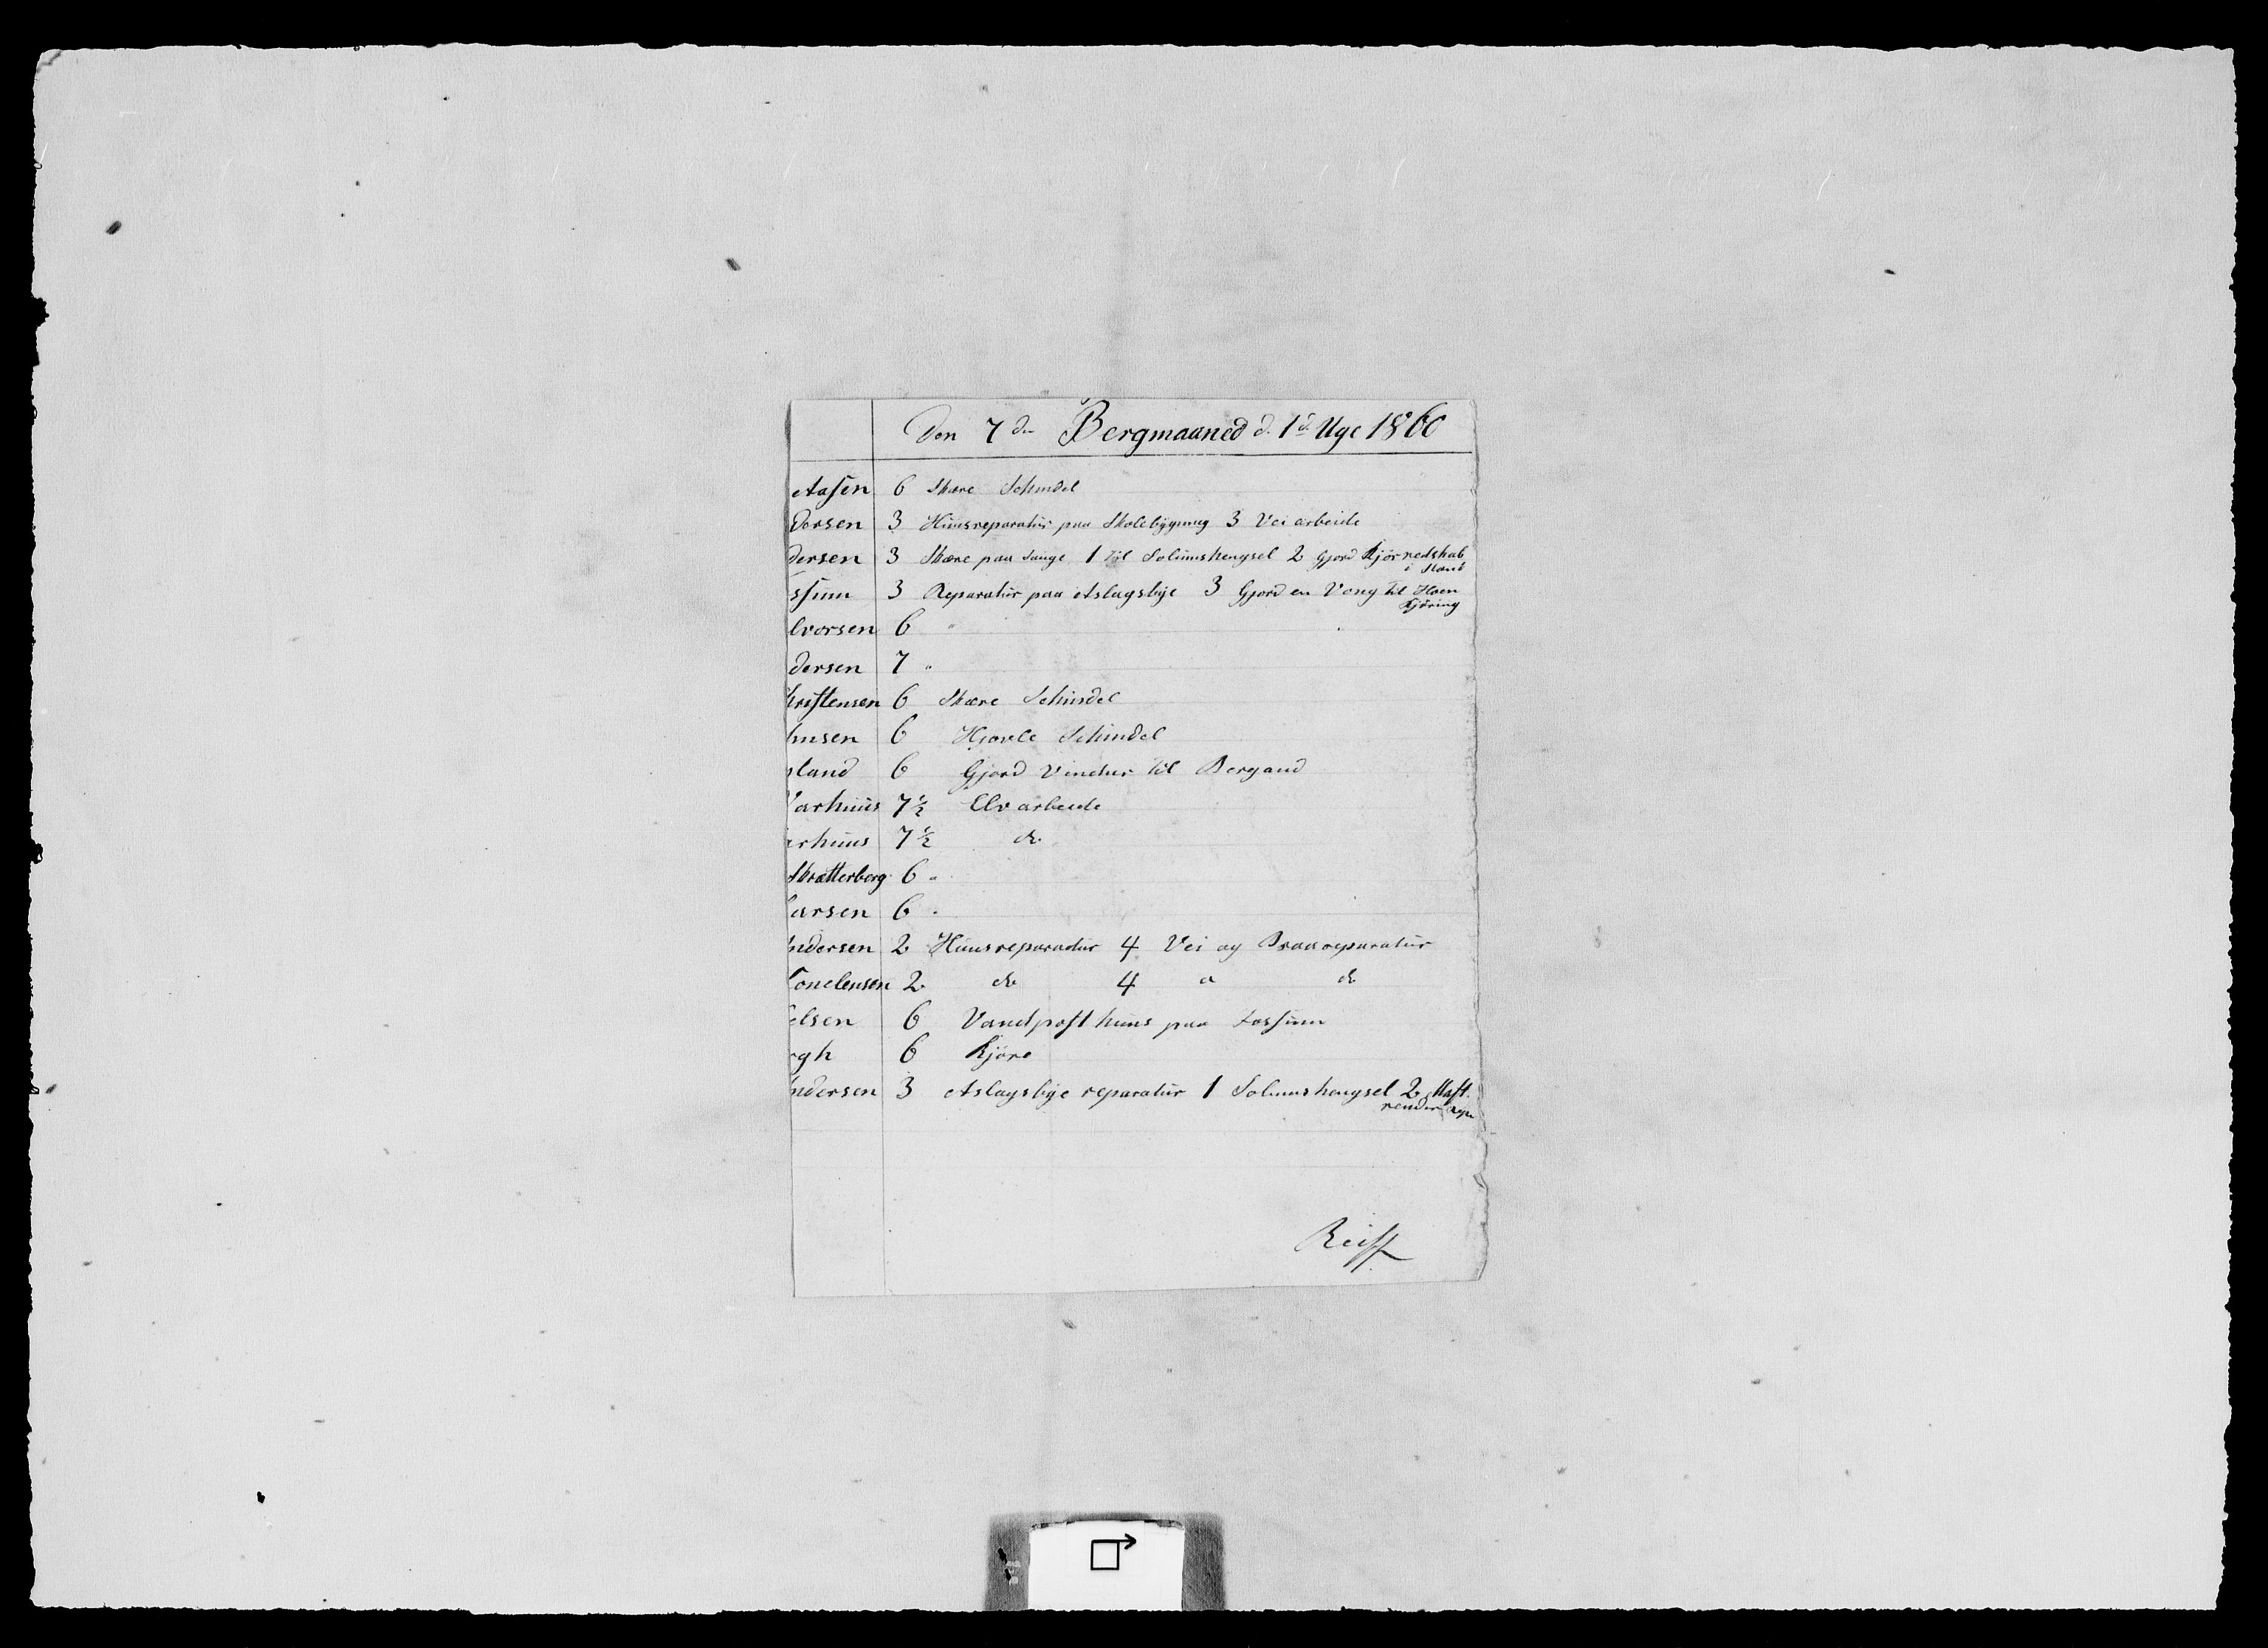 Den 7de Bergmaaned d. 1de Uge 1860
Aasen 6 Skære Schindel
dersen 3 Huusreparatur paa Skolebygning 3 Vei arbeide
dersen 3 Skære paa Sauge 1 til Solumshengsel 2 Gjord Kjörredskab
i Stand
ssum 3 Reparatur paa Aslagsbye 3 Gjord en Vong til Hoen
Kjöring
lvorsen 6 "
dersen 7 "
hristensen 6 Skære Schindel
hnsen 6 Hjövle Schindel
land 6 Gjord Vinduer til
arhuus 7½ Elv arbeide
rhuus 7½ do
Skratterberg 6 "
arsen 6 "
ndersen 2 Huusreparatur 4 Vei og reparatur
2 do 4 " do
elsen 6 Vandposthuus paa Fossum
gh 6 Kjöre
ndersen 3 Aslagsbye reparatur 1 Solumshengsel 2
render
Reiff